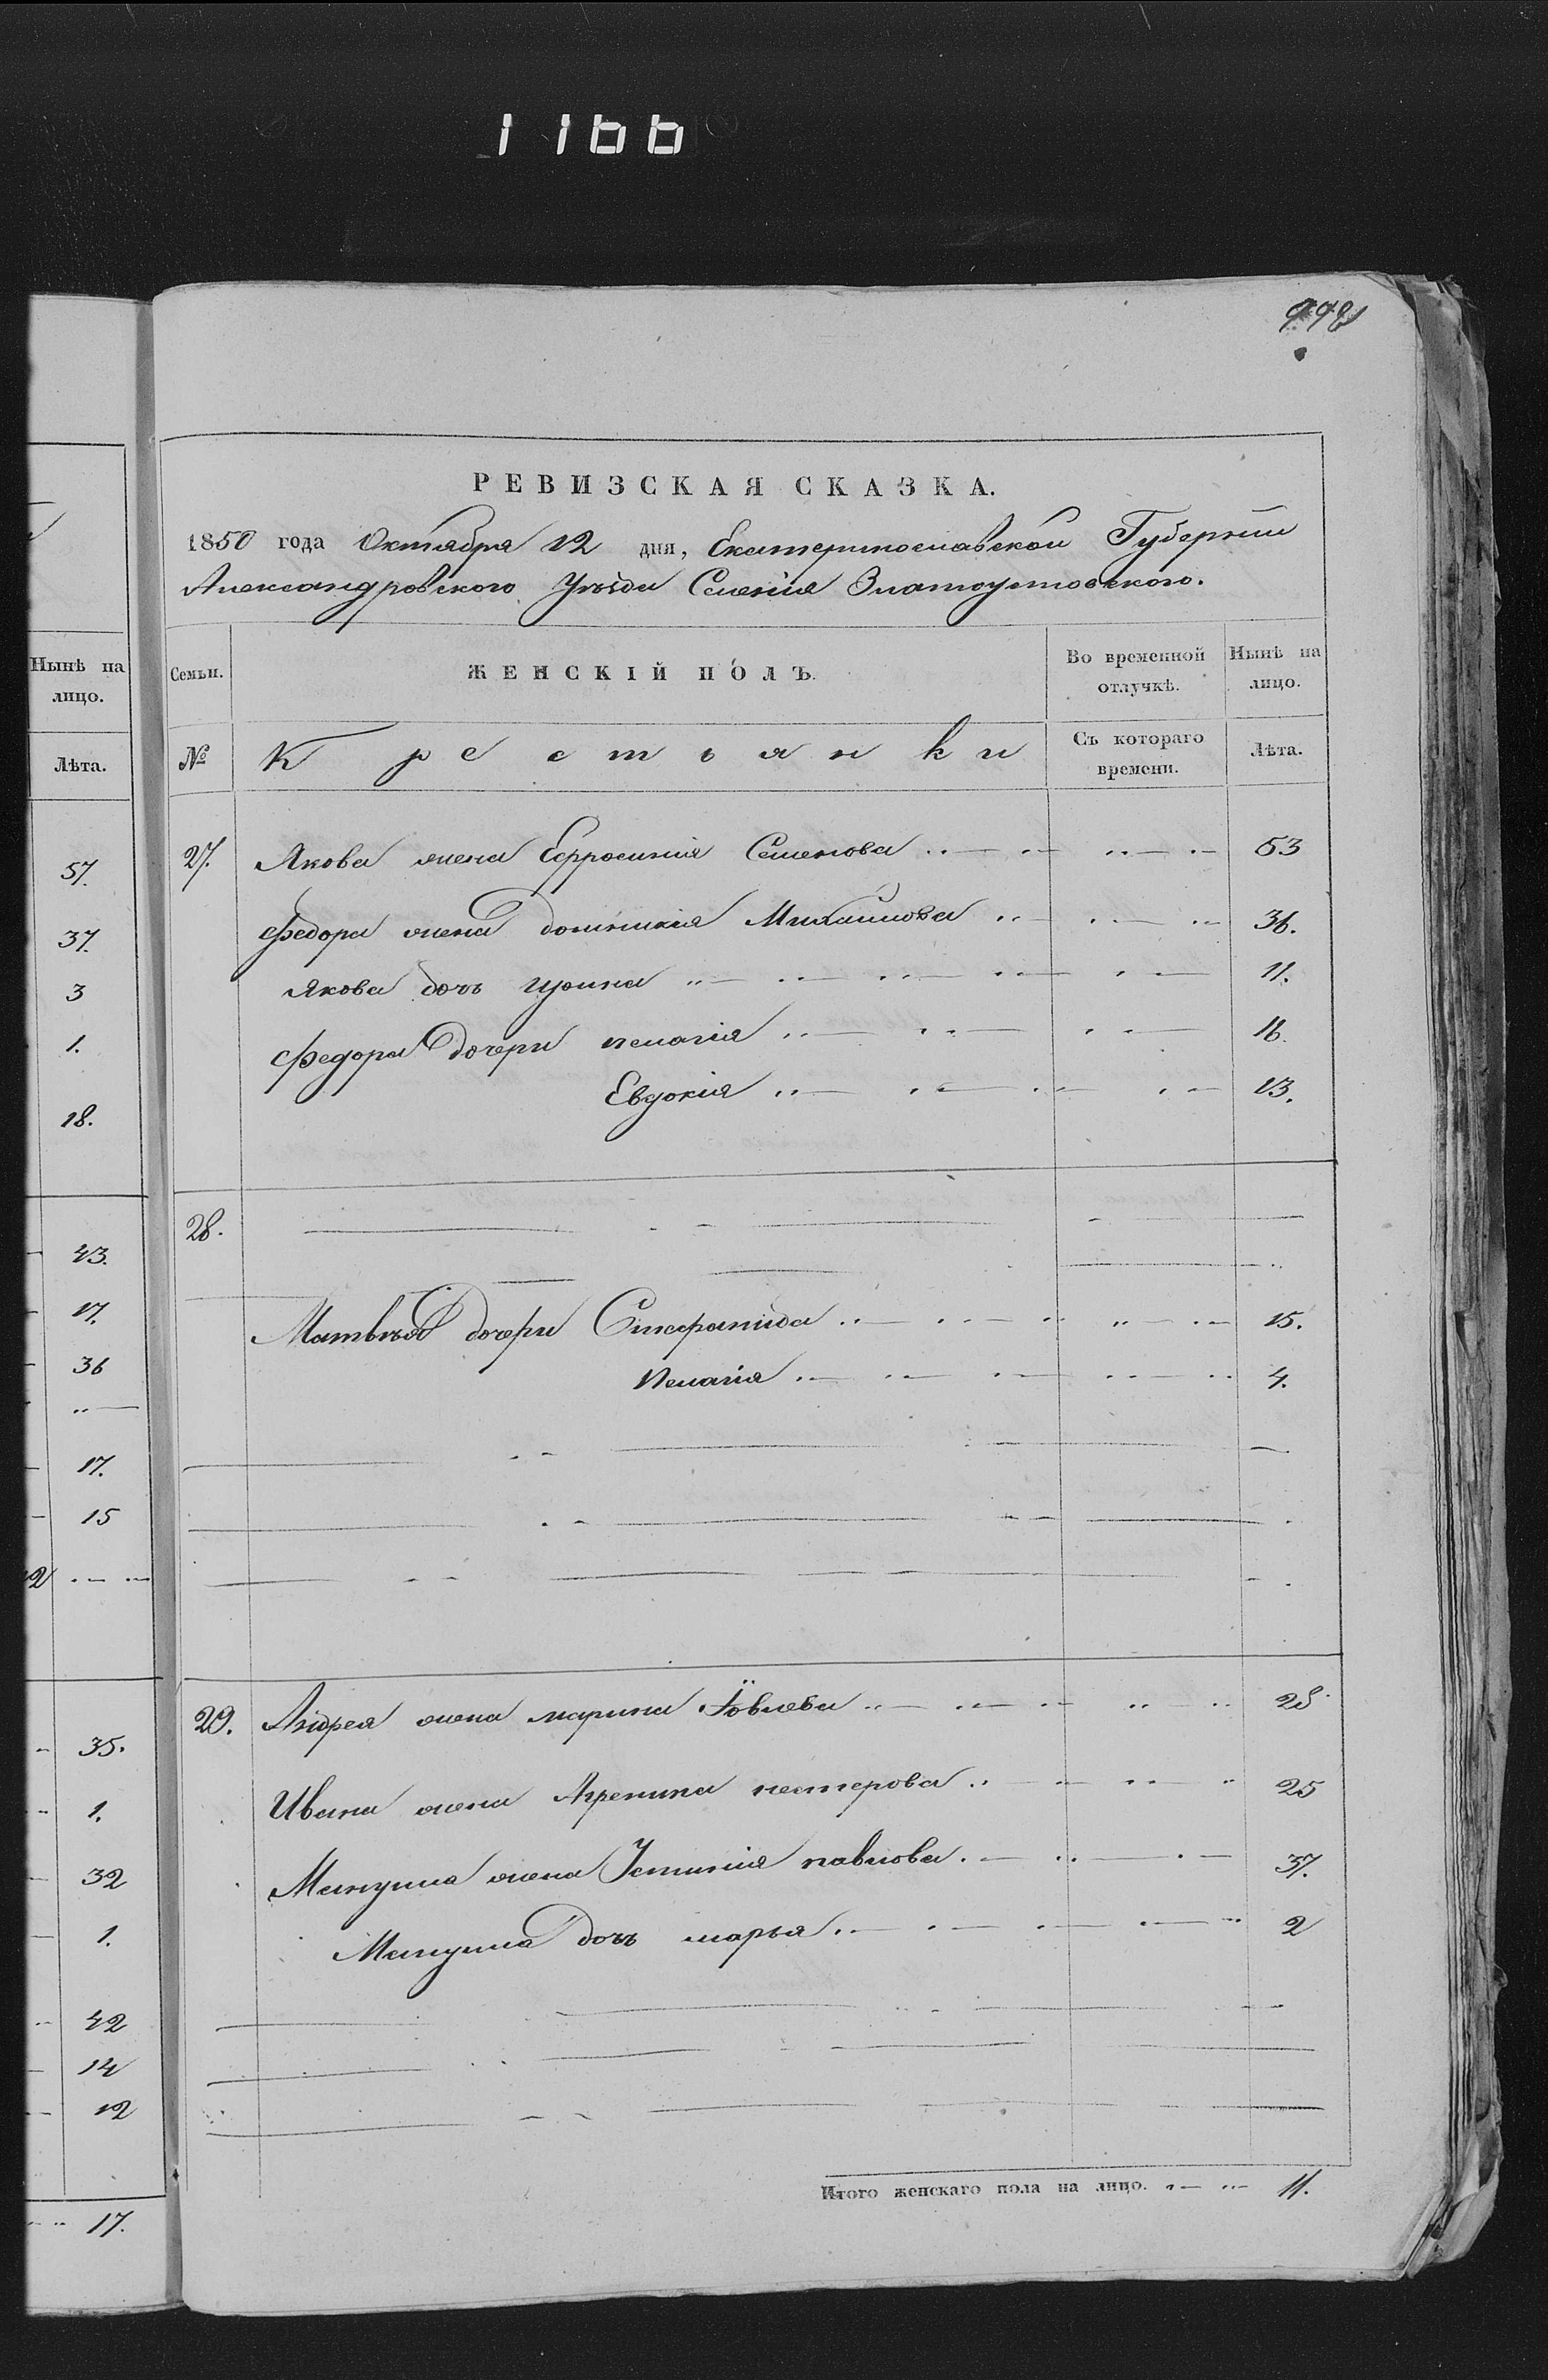 1166
992
РЕВИЗСКАЯ СКАЗКА.
1850 года Октября 12 дня, Екатеринославской Губернии
Александровского Уѣзда Селенія Златоустовского.
Нынѣ на лицо.
Лѣта.
57.
37.
3
1.
18.
43.
17.
36
17.
15
35.
1.
32
1.
42
14
12
17.
Семьи. ЖЕНСКІЙ ПОЛЪ. Во временной отлучкѣ. Нынѣ на лицо.
№ Крестьянки Съ котораго времени. Лѣта.
27. Якова жена Ефросинія Семенова 53
Федора жена Домникія Михайлова 36.
Якова дочь Ирина 11.
Федора дочери пелагія 16.
Евдокія 13.
28.
Матвѣя дочери 15.
Пелагія 4.
29. Андрея жена марина Іовлева 28
Ивана жена Агрепина нестерова 25
Мануила жена Устинія павлова 37.
Мануила дочь марья 2
Итого женскаго пола на лицо. 11.